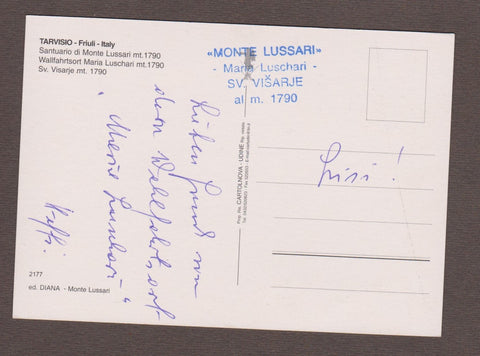 TARVISIO - Friuli - Italy
Santuario di Monte Lussari mt.1790
Wallfahrtsort Maria Luschari mt.1790
Sv. Visarje mt. 1790
«MONTE LUSSARI»
- Maria Luschari -
SV. VIŠARJE
al m. 1790
Lieben Gruß von
dem Wallfahrtsort
"Maria Luschari"
Steffi.
Lissi!
Prop. Ris. CARTOLNOVA - UDINE
2177
ed. DIANA - Monte Lussari